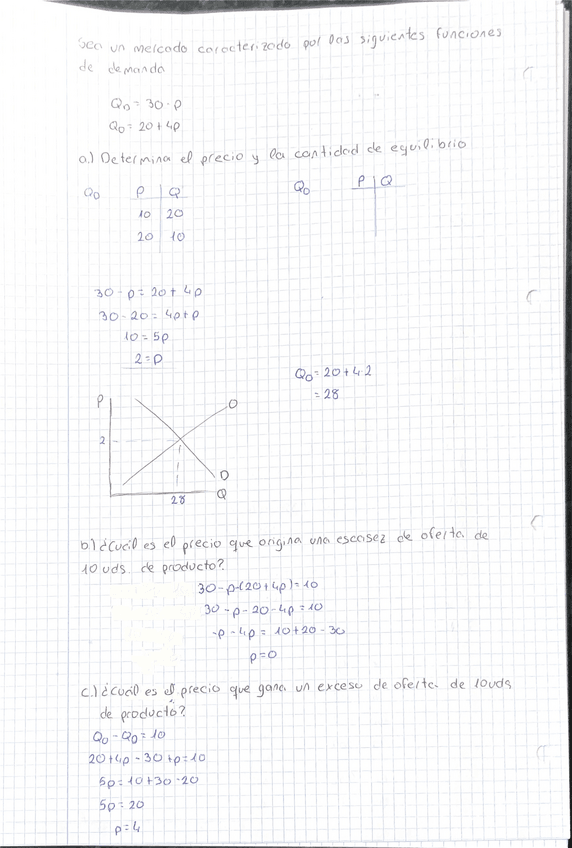 Sea un mercado caracterizado por las siguientes funciones
de demanda
QD = 30 - p
QO = 20 + 4p
a.) Determina el precio y la cantidad de equilibrio
QD P Q
10 20
20 10
QO P Q
30 - p = 20 + 4p
30 - 20 = 4p + p
10 = 5p
2 = p
QO = 20 + 4·2
= 28
P
O
2
D
28 Q
b) ¿Cuál es el precio que origina una escasez de oferta de
10 uds de producto?
30 - p - (20 + 4p) = 10
30 - p - 20 - 4p = 10
-p - 4p = 10 + 20 - 30
p = 0
c.) ¿Cuál es el precio que gana un exceso de oferta de 10 uds
de producto?
QO - QD = 10
20 + 4p - 30 + p = 10
5p = 10 + 30 - 20
5p = 20
p = 4